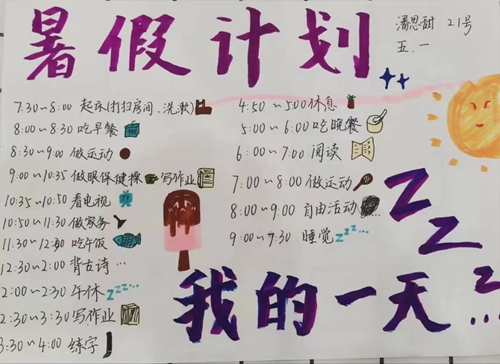 暑假计划
潘思甜 21号
五.一
7:30~8:00 起床(打扫房间、洗漱)
8:00~8:30 吃早餐
8:30~9:00 做运动
9:00~10:35 做眼保健操 写作业
10:35~10:50 看电视
10:50~11:30 做家务
11:30~12:30 吃午饭
12:30~2:00 背古诗…
2:00~2:30 午休 zzz…
2:30~3:30 写作业
3:30~4:00 练字
4:50~5:00 休息
5:00~6:00 吃晚餐
6:00~7:00 阅读
7:00~8:00 做运动
8:00~9:00 自由活动
9:00~9:30 睡觉 zzz…
ZZZ
我的一天…